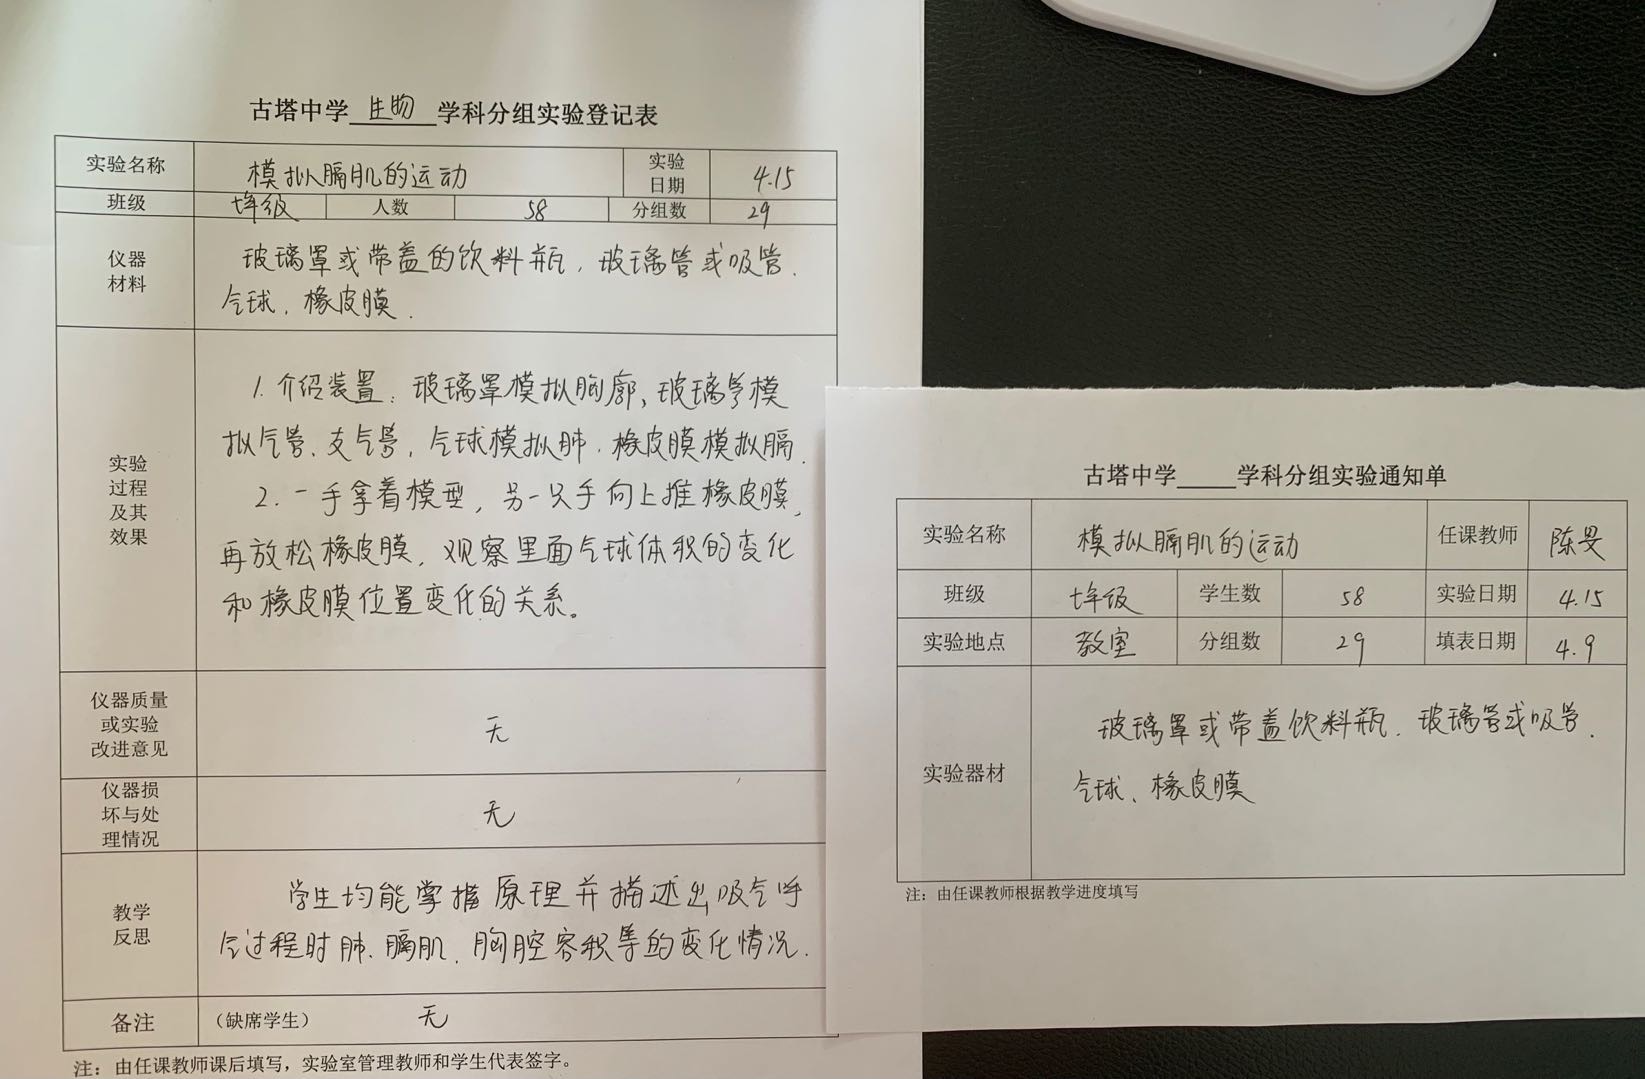 古塔中学 生物 学科分组实验登记表
实验名称 模拟膈肌的运动 实验日期 4.15
班级 七年级 人数 58 分组数 29
仪器
材料
玻璃罩或带盖的饮料瓶，玻璃管或吸管、
气球、橡皮膜.
实验
过程
及其
效果
1. 介绍装置：玻璃罩模拟胸廓、玻璃管模
拟气管、支气管，气球模拟肺、橡皮膜模拟膈.
2. 一手拿着模型，另一只手向上推橡皮膜，
再放松橡皮膜，观察里面气球体积的变化
和橡皮膜位置变化的关系。
仪器质量
或实验
改进意见
无
仪器损
坏与处
理情况
无
教学
反思
学生均能掌握原理并描述出吸气呼
气过程时肺、膈肌、胸腔容积等的变化情况.
备注 （缺席学生） 无
注：由任课教师课后填写，实验室管理教师和学生代表签字。
古塔中学_____学科分组实验通知单
实验名称 模拟膈肌的运动 任课教师 陈旻
班级 七年级 学生数 58 实验日期 4.15
实验地点 教室 分组数 29 填表日期 4.9
实验器材
玻璃罩或带盖饮料瓶、玻璃管或吸管、
气球、橡皮膜
注：由任课教师根据教学进度填写